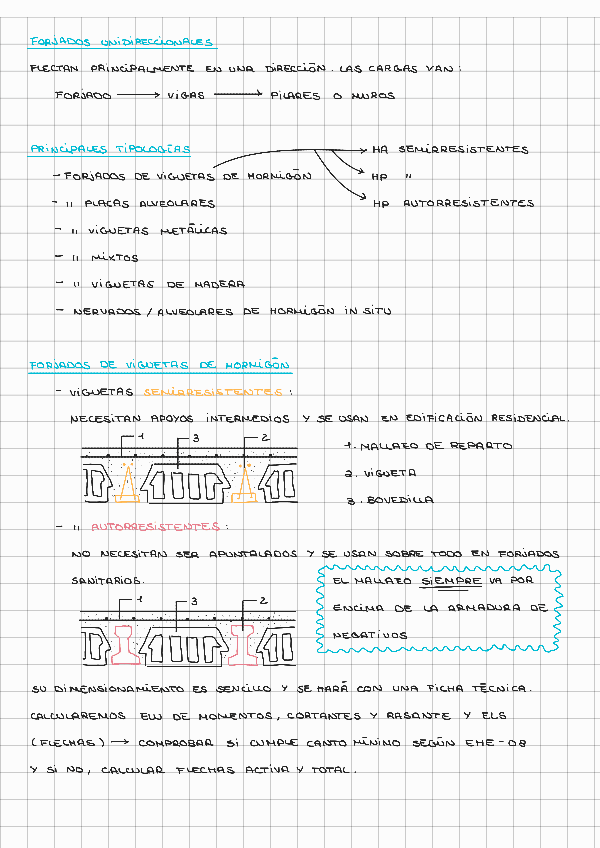 FORJADOS UNIDIRECCIONALES
FLECTAN PRINCIPALMENTE EN UNA DIRECCIÓN. LAS CARGAS VAN:
FORJADO → VIGAS → PILARES O MUROS
PRINCIPALES TIPOLOGÍAS
HA SEMIRRESISTENTES
- FORJADOS DE VIGUETAS DE HORMIGÓN
HP "
- " PLACAS ALVEOLARES
HP AUTORRESISTENTES
- " VIGUETAS METÁLICAS
- " MIXTOS
- " VIGUETAS DE MADERA
- NERVADOS / ALVEOLARES DE HORMIGÓN IN SITU
FORJADOS DE VIGUETAS DE HORMIGÓN
- VIGUETAS SEMIRRESISTENTES:
NECESITAN APOYOS INTERMEDIOS Y SE USAN EN EDIFICACIÓN RESIDENCIAL.
1 3 2
1. MALLAZO DE REPARTO
2. VIGUETA
3. BOVEDILLA
- " AUTORRESISTENTES:
NO NECESITAN SER APUNTALADOS Y SE USAN SOBRE TODO EN FORJADOS
SANITARIOS.
1 3 2
EL MALLAZO SIEMPRE VA POR
ENCIMA DE LA ARMADURA DE
NEGATIVOS
SU DIMENSIONAMIENTO ES SENCILLO Y SE HARÁ CON UNA FICHA TÉCNICA.
CALCULAREMOS ELU DE MOMENTOS, CORTANTES Y RASANTE Y ELS
(FLECHAS) → COMPROBAR SI CUMPLE CANTO MÍNIMO SEGÚN EHE-08
Y SI NO, CALCULAR FLECHAS ACTIVA Y TOTAL.